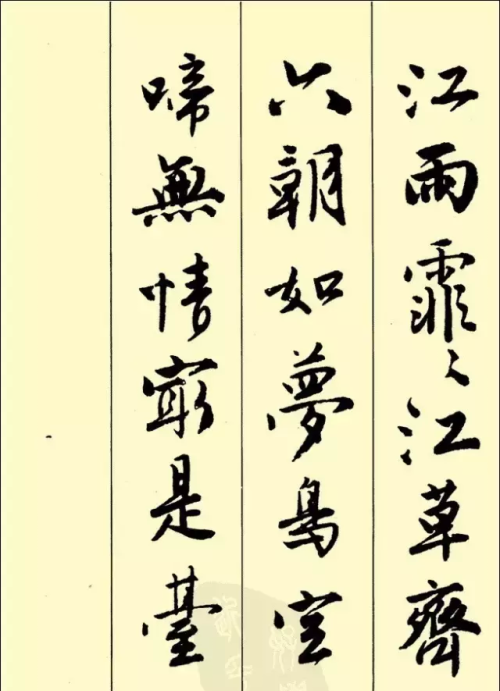 江雨霏〻江草齊
六朝如夢鳥空
啼無情㝡是臺